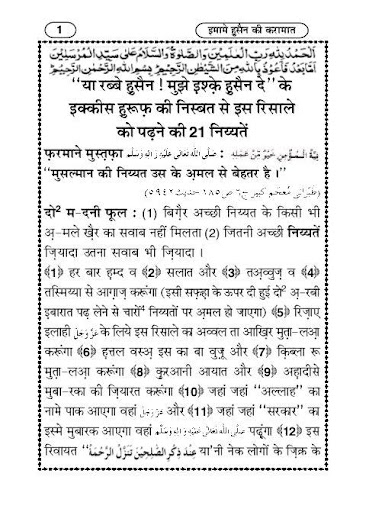 1
इमामे हुसैन की करामात
اَلْحَمْدُ لِلّٰهِ رَبِّ الْعٰلَمِيْنَ وَالصَّلٰوةُ وَالسَّلَامُ عَلٰى سَيِّدِ الْمُرْسَلِيْنَ
اَمَّا بَعْدُ فَاَعُوْذُ بِاللّٰهِ مِنَ الشَّيْطٰنِ الرَّجِيْمِ بِسْمِ اللّٰهِ الرَّحْمٰنِ الرَّحِيْمِ
‘‘या रब्बे हुसैन ! मुझे इश्के़ हुसैन दे’’ के
इक्कीस हुरूफ़ की निस्बत से इस रिसाले
को पढ़ने की 21 निय्यतें
फ़रमाने मुस्तफ़ा صَلَّى اللهُ تَعَالٰى عَلَيْهِ وَاٰلِهٖ وَسَلَّم : نِيَّةُ الْمُؤْمِنِ خَيْرٌ مِّنْ عَمَلِهٖ
‘‘मुसल्मान की निय्यत उस के अ़मल से बेहतर है ।’’
(طَبَرانى مُعجَم كبير ج٦ ص١٨٥ حديث ٥٩٤٢)
दो² म-दनी फूल : (1) बिग़ैर अच्छी निय्यत के किसी भी
अ़-मले ख़ैर का सवाब नहीं मिलता (2) जितनी अच्छी निय्यतें
ज़ियादा उतना सवाब भी ज़ियादा ।
﴾1﴿ हर बार ह़म्द व ﴾2﴿ सलात और ﴾3﴿ तअ़व्वुज़ व ﴾4﴿
तस्मिय्या से आग़ाज़ करूंगा (इसी सफ़्ह़ा के ऊपर दी हुई दो² अ़-रबी
इबारात पढ़ लेने से चारों⁴ निय्यतों पर अ़मल हो जाएगा) ﴾5﴿ रिज़ाए
इलाही عَزَّوَجَلَّ के लिये इस रिसाले का अव्वल ता आख़िर मुत़ा-लआ़
करूंगा ﴾6﴿ ह़त्तल वस्अ़ इस का बा वुज़ू और ﴾7﴿ क़िब्ला रू
मुत़ा-लआ़ करूंगा ﴾8﴿ कु़रआनी आयात और ﴾9﴿ अह़ादीसे
मुबा-रका की ज़ियारत करूंगा ﴾10﴿ जहां जहां ‘‘अल्लाह’’ का
नामे पाक आएगा वहां عَزَّوَجَلَّ और ﴾11﴿ जहां जहां ‘‘सरकार’’ का
इस्मे मुबारक आएगा वहां صَلَّى اللهُ تَعَالٰى عَلَيْهِ وَاٰلِهٖ وَسَلَّم पढ़ूंगा ﴾12﴿ इस
रिवायत ‘‘عِنْدَ ذِكْرِ الصّٰلِحِيْنَ تَنَزَّلُ الرَّحْمَةُ’’ या'नी नेक लोगों के ज़िक्र के